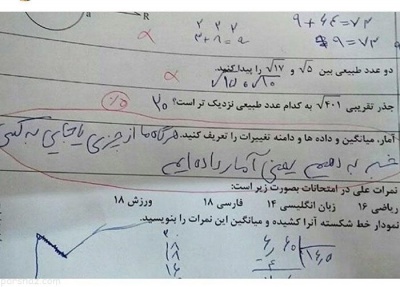 a → R
۲ ۲ ۲
۳+۸=۹
۹ + ۶۴ = ۷۳
۹ = ۷۳
دو عدد طبیعی بین √۵ و √۱۷ را پیدا کنید.
√۱۵ , √۱۰
جذر تقریبی √۴۰۱ به کدام عدد طبیعی نزدیک تر است؟ ۲۰
آمار، میانگین و داده ها و دامنه تغییرات را تعریف کنید. هرگاه ما از چیزی یا جایی به کسی
خبر بدهیم یعنی آمار داده ایم
نمرات علی در امتحانات بصورت زیر است:
ریاضی ۱۶ زبان انگلیسی ۱۴ فارسی ۱۸ ورزش ۱۸
نمودار خط شکسته آنرا کشیده و میانگین این نمرات را بنویسید.
۱۸
۱۸
۱۶
۱۶,۵